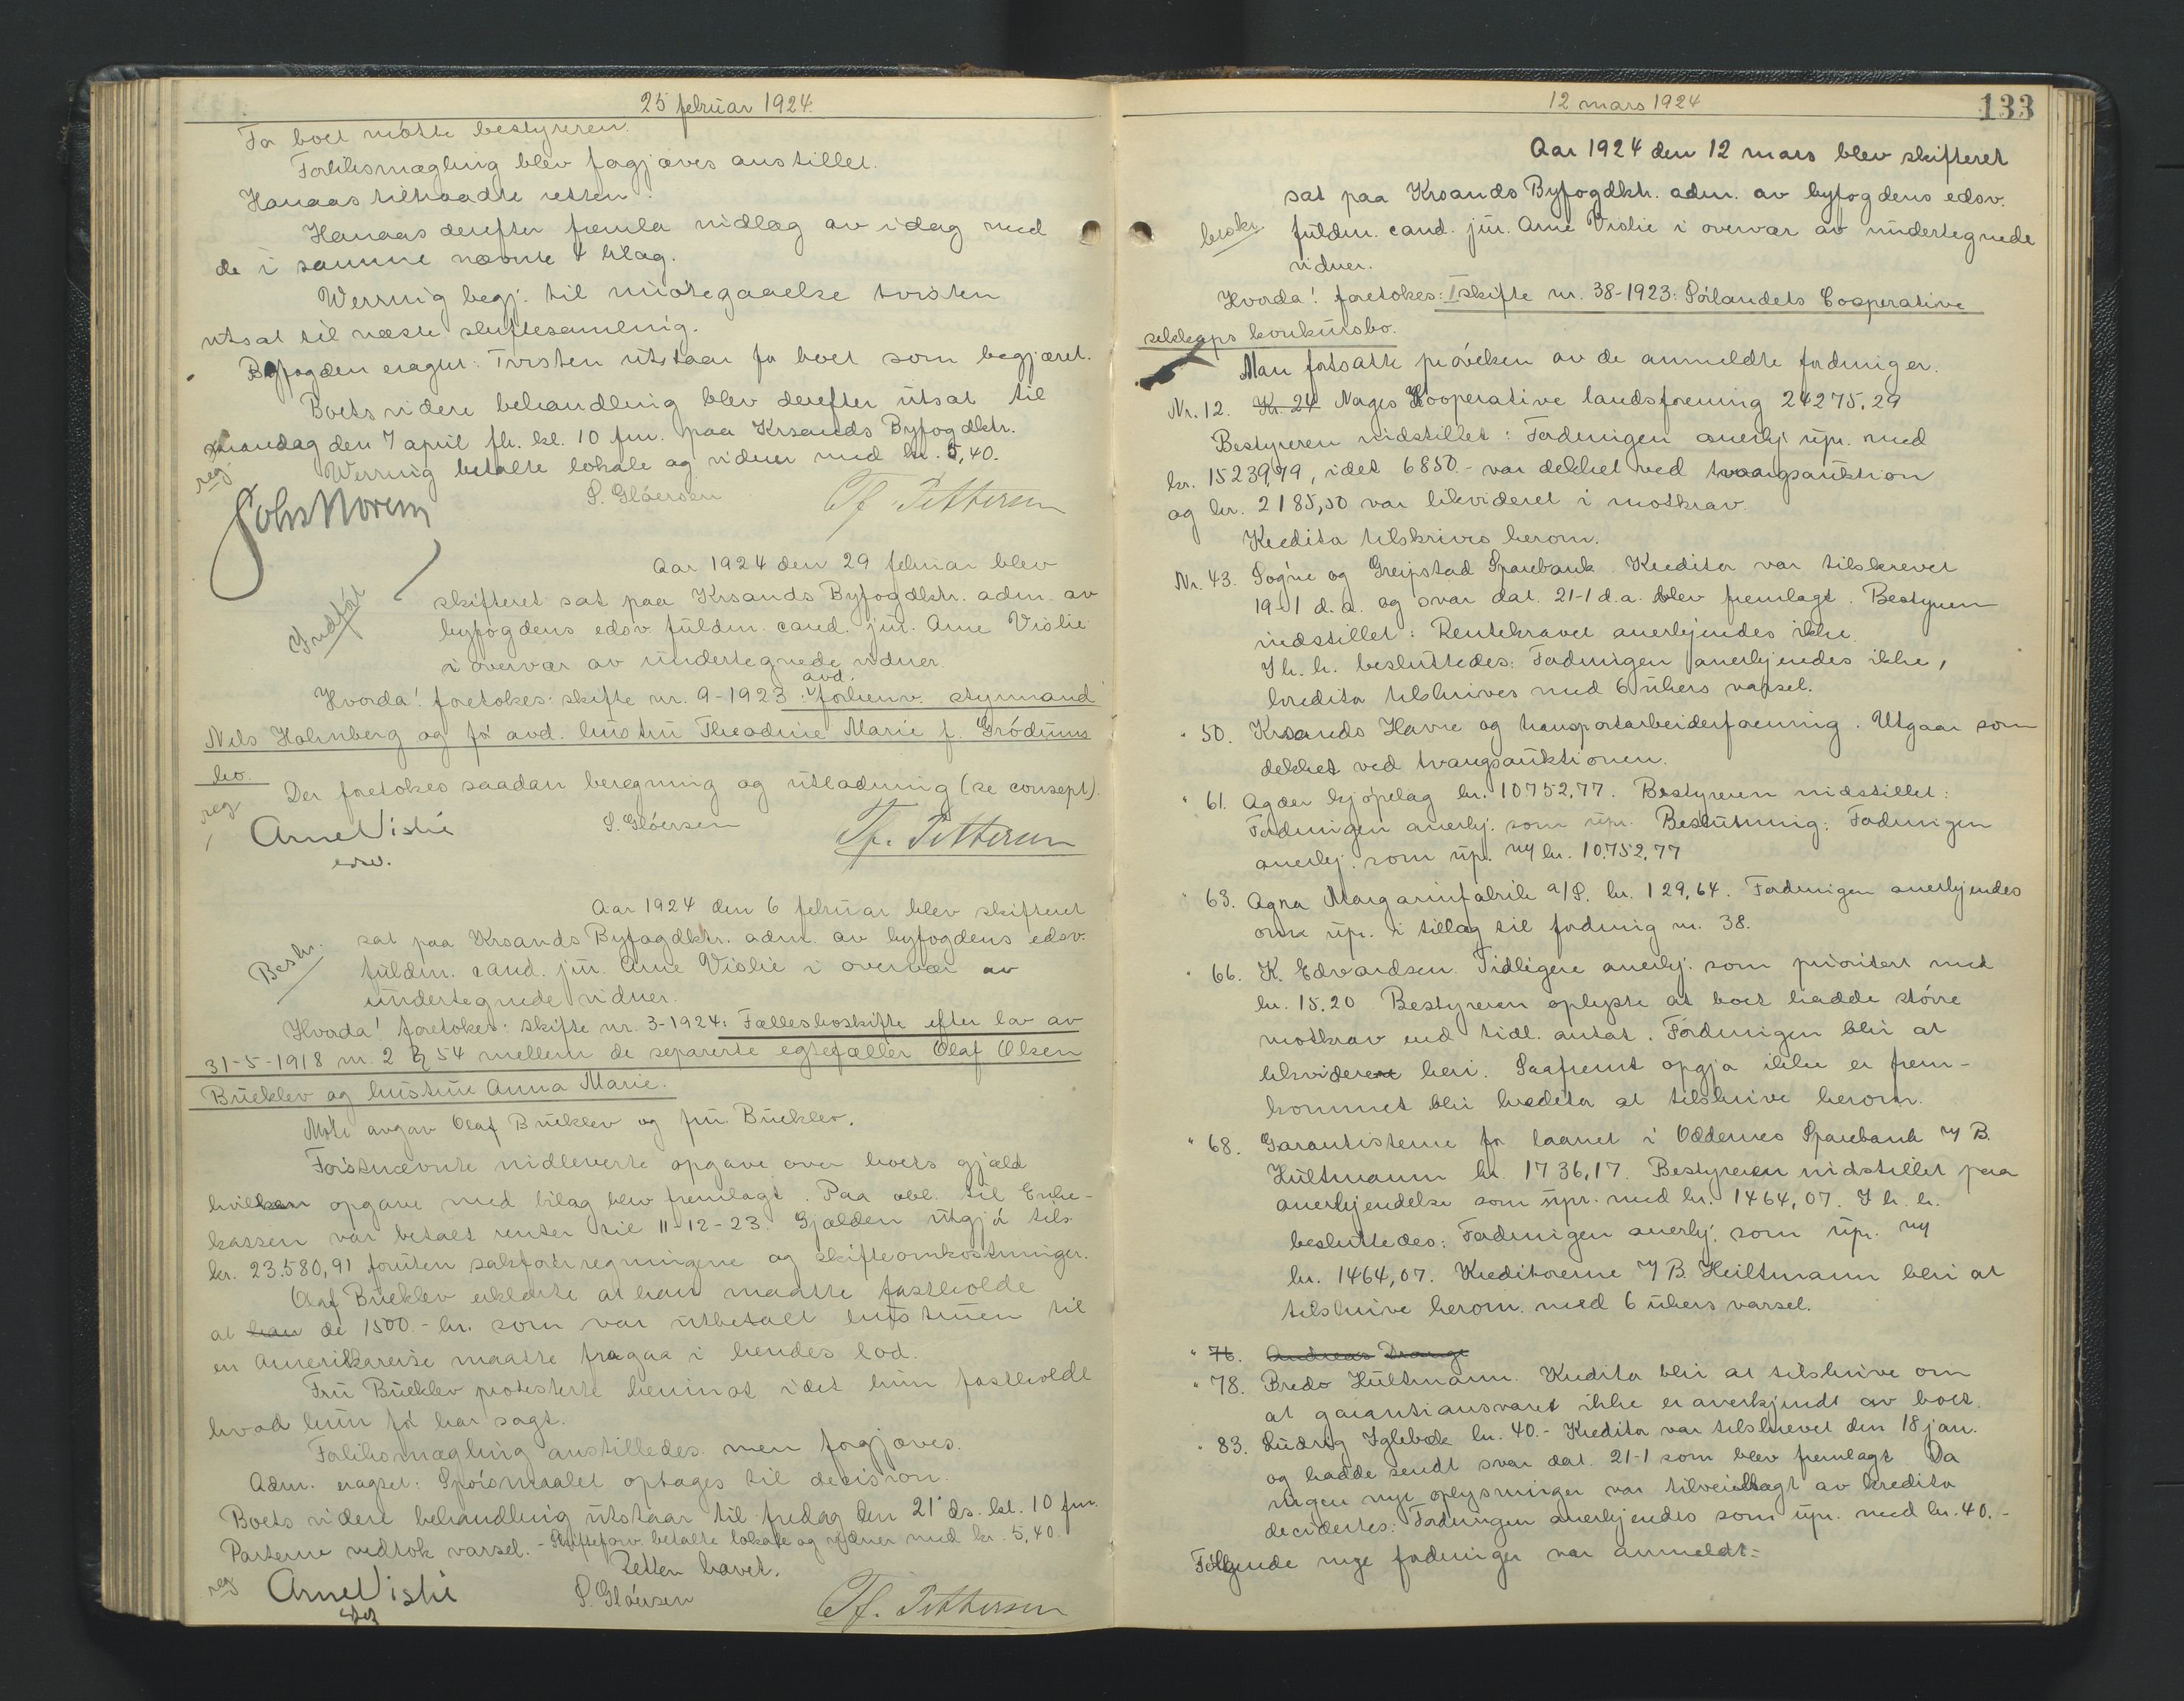 25 februar 1924.
For boet møtte bestyreren.
Forliksmægling blev forgjæves anstillet.
Hanaas tiltraadte retten.
Hanaas derefter fremla indlæg av idag med
de i samme nævnte 4 bilag.
Werring begj. til imøtegaaelse tvisten
utsat til næste skiftesamling.
Byfogden eragtet: Tvisten utstaar for boet som begjæret.
Boets videre behandling blev derefter utsat til
mandag den 7 april fk. kl. 10 fm. paa Krsands Byfogdktr.
reg. Werring betalte lokale og vidner med kr. 5,40.
S. Gloersen Tf. Pettersen
Aar 1924 den 29 februar blev
Indført skifteret sat paa Krsands Byfogdktr. adm. av
byfogdens edsv. fuldm. cand. jur. Arne Vislie
i overvær av undertegnede vidner.
Hvorda! foretokes: skifte nr. 9-1923: avd. forhenv. styrmand
Nils Holmberg og før avd. hustru Theodine Marie f. Grødums
bo.
Der foretokes saadan beregning og utlodning (se consept).
reg
Arne Vislie S. Gloersen Tf. Pettersen
edsv.
Aar 1924 den 6 februar blev skifteret
sat paa Krsands Byfogdktr. adm. av byfogdens edsv.
Beskr. fuldm. cand. jur. Arne Vislie i overvær av
undertegnede vidner.
Hvorda! foretokes: skifte nr. 3-1924: Fællesboskifte efter lov av
31-5-1918 nr. 2 § 54 mellem de separerte egtefæller Olaf Olsen
Bueklev og hustru Anna Marie.
Møte avgav Olaf Bueklev og fru Bueklev.
Førstnævnte indleverte opgave over boets gjæld
hvilken opgave med bilag blev fremlagt. Paa obl. til Enke-
kassen var betalt renter til 11-12-23. Gjælden utgjør tils.
kr. 23.580,91 foruten sakførerregningene og skifteomkostninger.
Olaf Bueklev erklærte at han maatte fastholde
at han de 1500.- kr. som var utbetalt hustruen til
en Amerikareise maatte fragaa i hendes lod.
Fru Bueklev protesterte herimot idet hun fastholdt
hvad hun før har sagt.
Forliksmægling anstilledes men forgjæves.
Adm. eragtet: Spørsmaalet optages til decision.
Boets videre behandling utstaar til fredag den 21' ds. kl. 10 fm.
Parterne vedtok varsel. - Skifteforv. betalte lokale og vidner med kr. 5,40.
Retten hævet.
reg Arne Vislie S. Gloersen Tf. Pettersen
12 mars 1924 133
Aar 1924 den 12 mars blev skifteret
sat paa Krsands Byfogdktr. adm. av byfogdens edsv.
beskr. fuldm. cand. jur. Arne Vislie i overvær av undertegnede
vidner.
Hvorda! foretokes: I skifte nr. 38-1923: Sørlandets Cooperative
selskaps konkursbo.
Man fortsatte prøvelsen av de anmeldte fordringer.
Nr. 12. Kr. 24 Norges Kooperative landsforening 24275,29
Bestyreren indstillet: Fordringen anerkj. upr. med
kr. 15239,79, idet 6850.- var dekket ved tvangsauktion
og kr. 2185,50 var likvideret i motkrav.
Kreditor tilskrives herom.
Nr. 43. Søgne og Greipstad Sparebank. Kreditor var tilskrevet
19-1 d.a. og svar dat. 21-1 d.a. blev fremlagt. Bestyreren
indstillet: Rentekravet anerkjendes ikke.
I h. h. besluttedes: Fordringen anerkjendes ikke,
kreditor tilskrives med 6 ukers varsel.
" 50. Krsands Havne og transportarbeiderforening. Utgaar som
dekket ved tvangsauktionen.
" 61. Agder kjøpelag kr. 10752,77. Bestyreren indstillet:
Fordringen anerkj. som upr. Beslutning: Fordringen
anerkj. som upr. m/ kr. 10.752,77
" 63. Agra Margarinfabrik a/S. kr. 129,64. Fordringen anerkjendes
som upr. i tillæg til fordring nr. 38.
" 66. K. Edvardsen. Tidligere anerkj. som prioritert med
kr. 15.20 Bestyreren oplyste at boet hadde større
motkrav end tidl. antat. Fordringen blir at
likvidere heri. Saafremt opgjør ikke er frem-
kommet blir kreditor at tilskrive herom.
" 68. Garantisterne for laanet i Oddernes Sparebank v/ B.
Hultmann kr. 1736,17. Bestyreren indstillet paa
anerkjendelse som upr. med kr. 1464,07. I h. h.
besluttedes: Fordringen anerkj. som upr. m/
kr. 1464,07. Kreditorerne v/ B. Hultmann blir at
tilskrive herom med 6 ukers varsel.
" 76. Andreas Drange
" 78. Bredo Hultmann. Kreditor blir at tilskrive om
at garantiansvaret ikke er anerkjendt av boet.
" 83. Ludvig Iglebæk kr. 40.- Kreditor var tilskrevet den 18 jan.
og hadde sendt svar dat. 21-1 som blev fremlagt. Da
ingen nye oplysninger var tilveiebragt av kreditor
decidertes: Fordringen anerkjendes som upr. med kr. 40.-
Følgende nye fordringer var anmeldt: